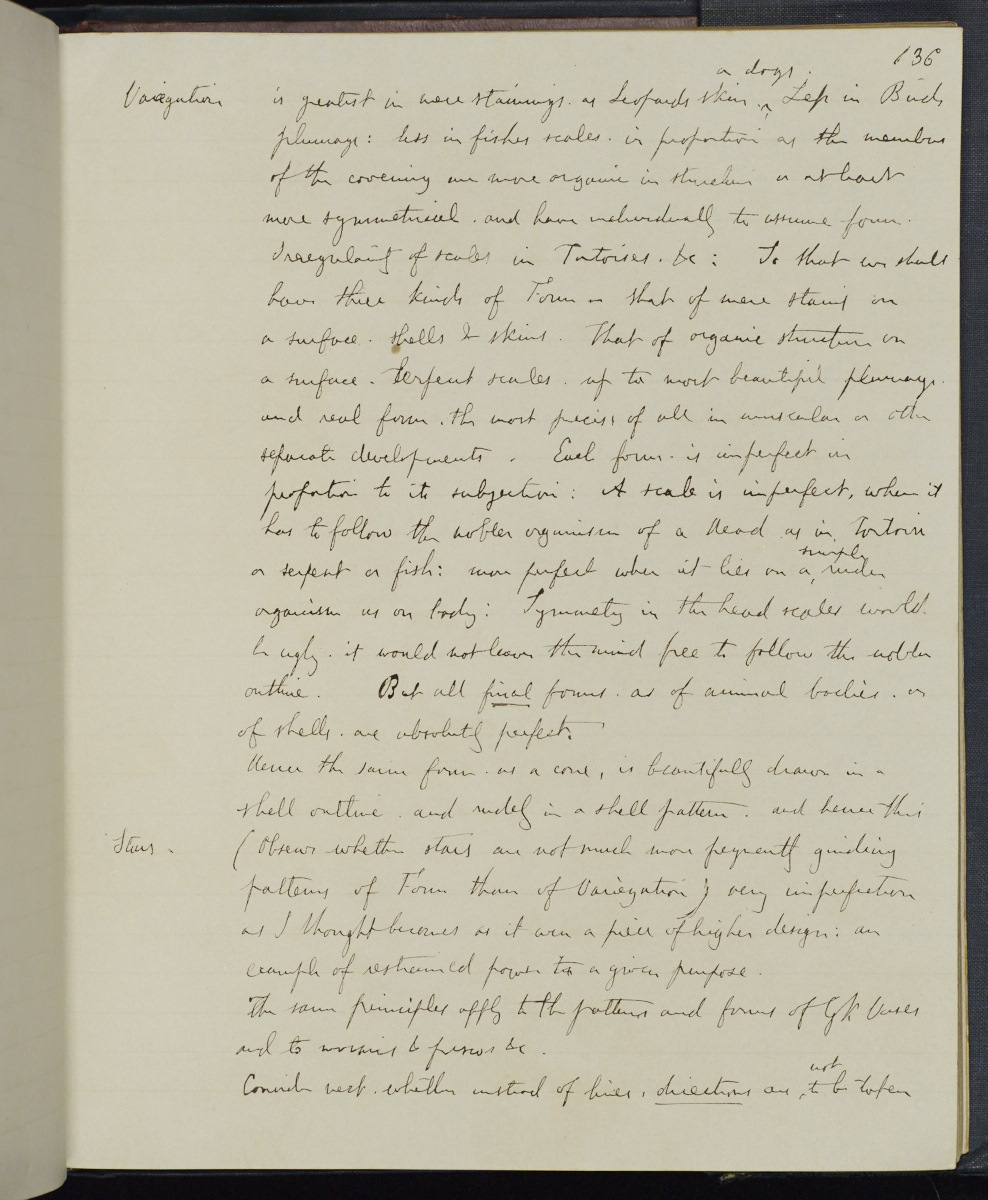 136
or dogs.
Variegation is greatest in mere stainings. as Leopards skin. ^ Less in Birds
plumage: less in fishes scales. in proportion as the members
of the covering are more organic in structure or at least
more symmetrical. and have individually to assume form.
Irregularity of scales in Tortoises. &c: So that we shall
have three kinds of Form - that of mere stains on
a surface. shells & skins. That of organic structure on
a surface. Serpent scales. up to most beautiful plumage.
and real form. the most precise of all in muscular or other
separate developments. Each form. is imperfect in
proportion to its subjection: A scale is imperfect, when it
has to follow the nobler organism of a head as in tortoise
or serpent or fish: more perfect when it lies on a ^ simple ruder
organism as on body: Symmetry in the head scales would
be ugly. it would not leave the mind free to follow the nobler
outline. But all final forms. as of animal bodies. or
of shells. are absolutely perfect.
Hence the same form. as a cone, is beautifully drawn in a
shell outline. and rudely in a shell pattern. and hence this
Stars. (Observe whether stars are not much more frequently guiding
patterns of Form than of Variegation) very imperfection
as I thought becomes as it were a piece of higher design: an
example of restrained power to a given purpose.
The same principles apply to the patterns and forms of Gk Vases
and to mosaics & frescos &c.
Consider next. whether instead of lines, directions are ^ not to be taken